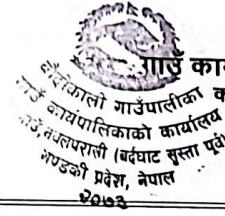 गाउँ का
गाउँपालिका क
गाउँ कार्यपालिकाको कार्यालय
नवलपरासी (बर्दघाट सुस्ता पूर्व)
गण्डकी प्रदेश, नेपाल
२०७३